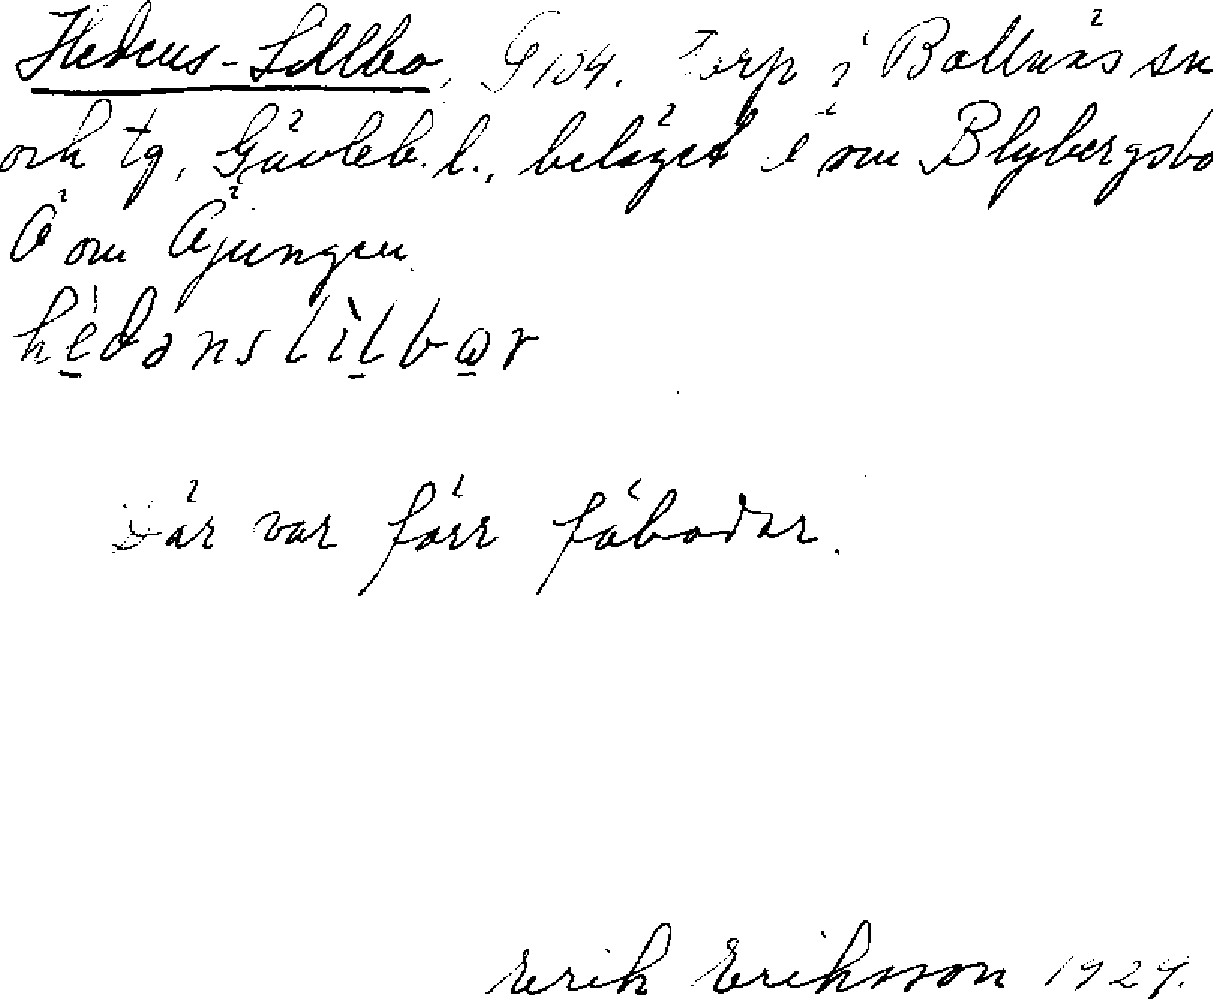 Hedens-Lillbo, G 104. Torp i Bollnäs sn
och tg, Gävleb. l., beläget om Blybergsbo
Ö om Öjungen.
hèdənslìlbωr
Där var förr fäbodar.
Erik Eriksson 1929.